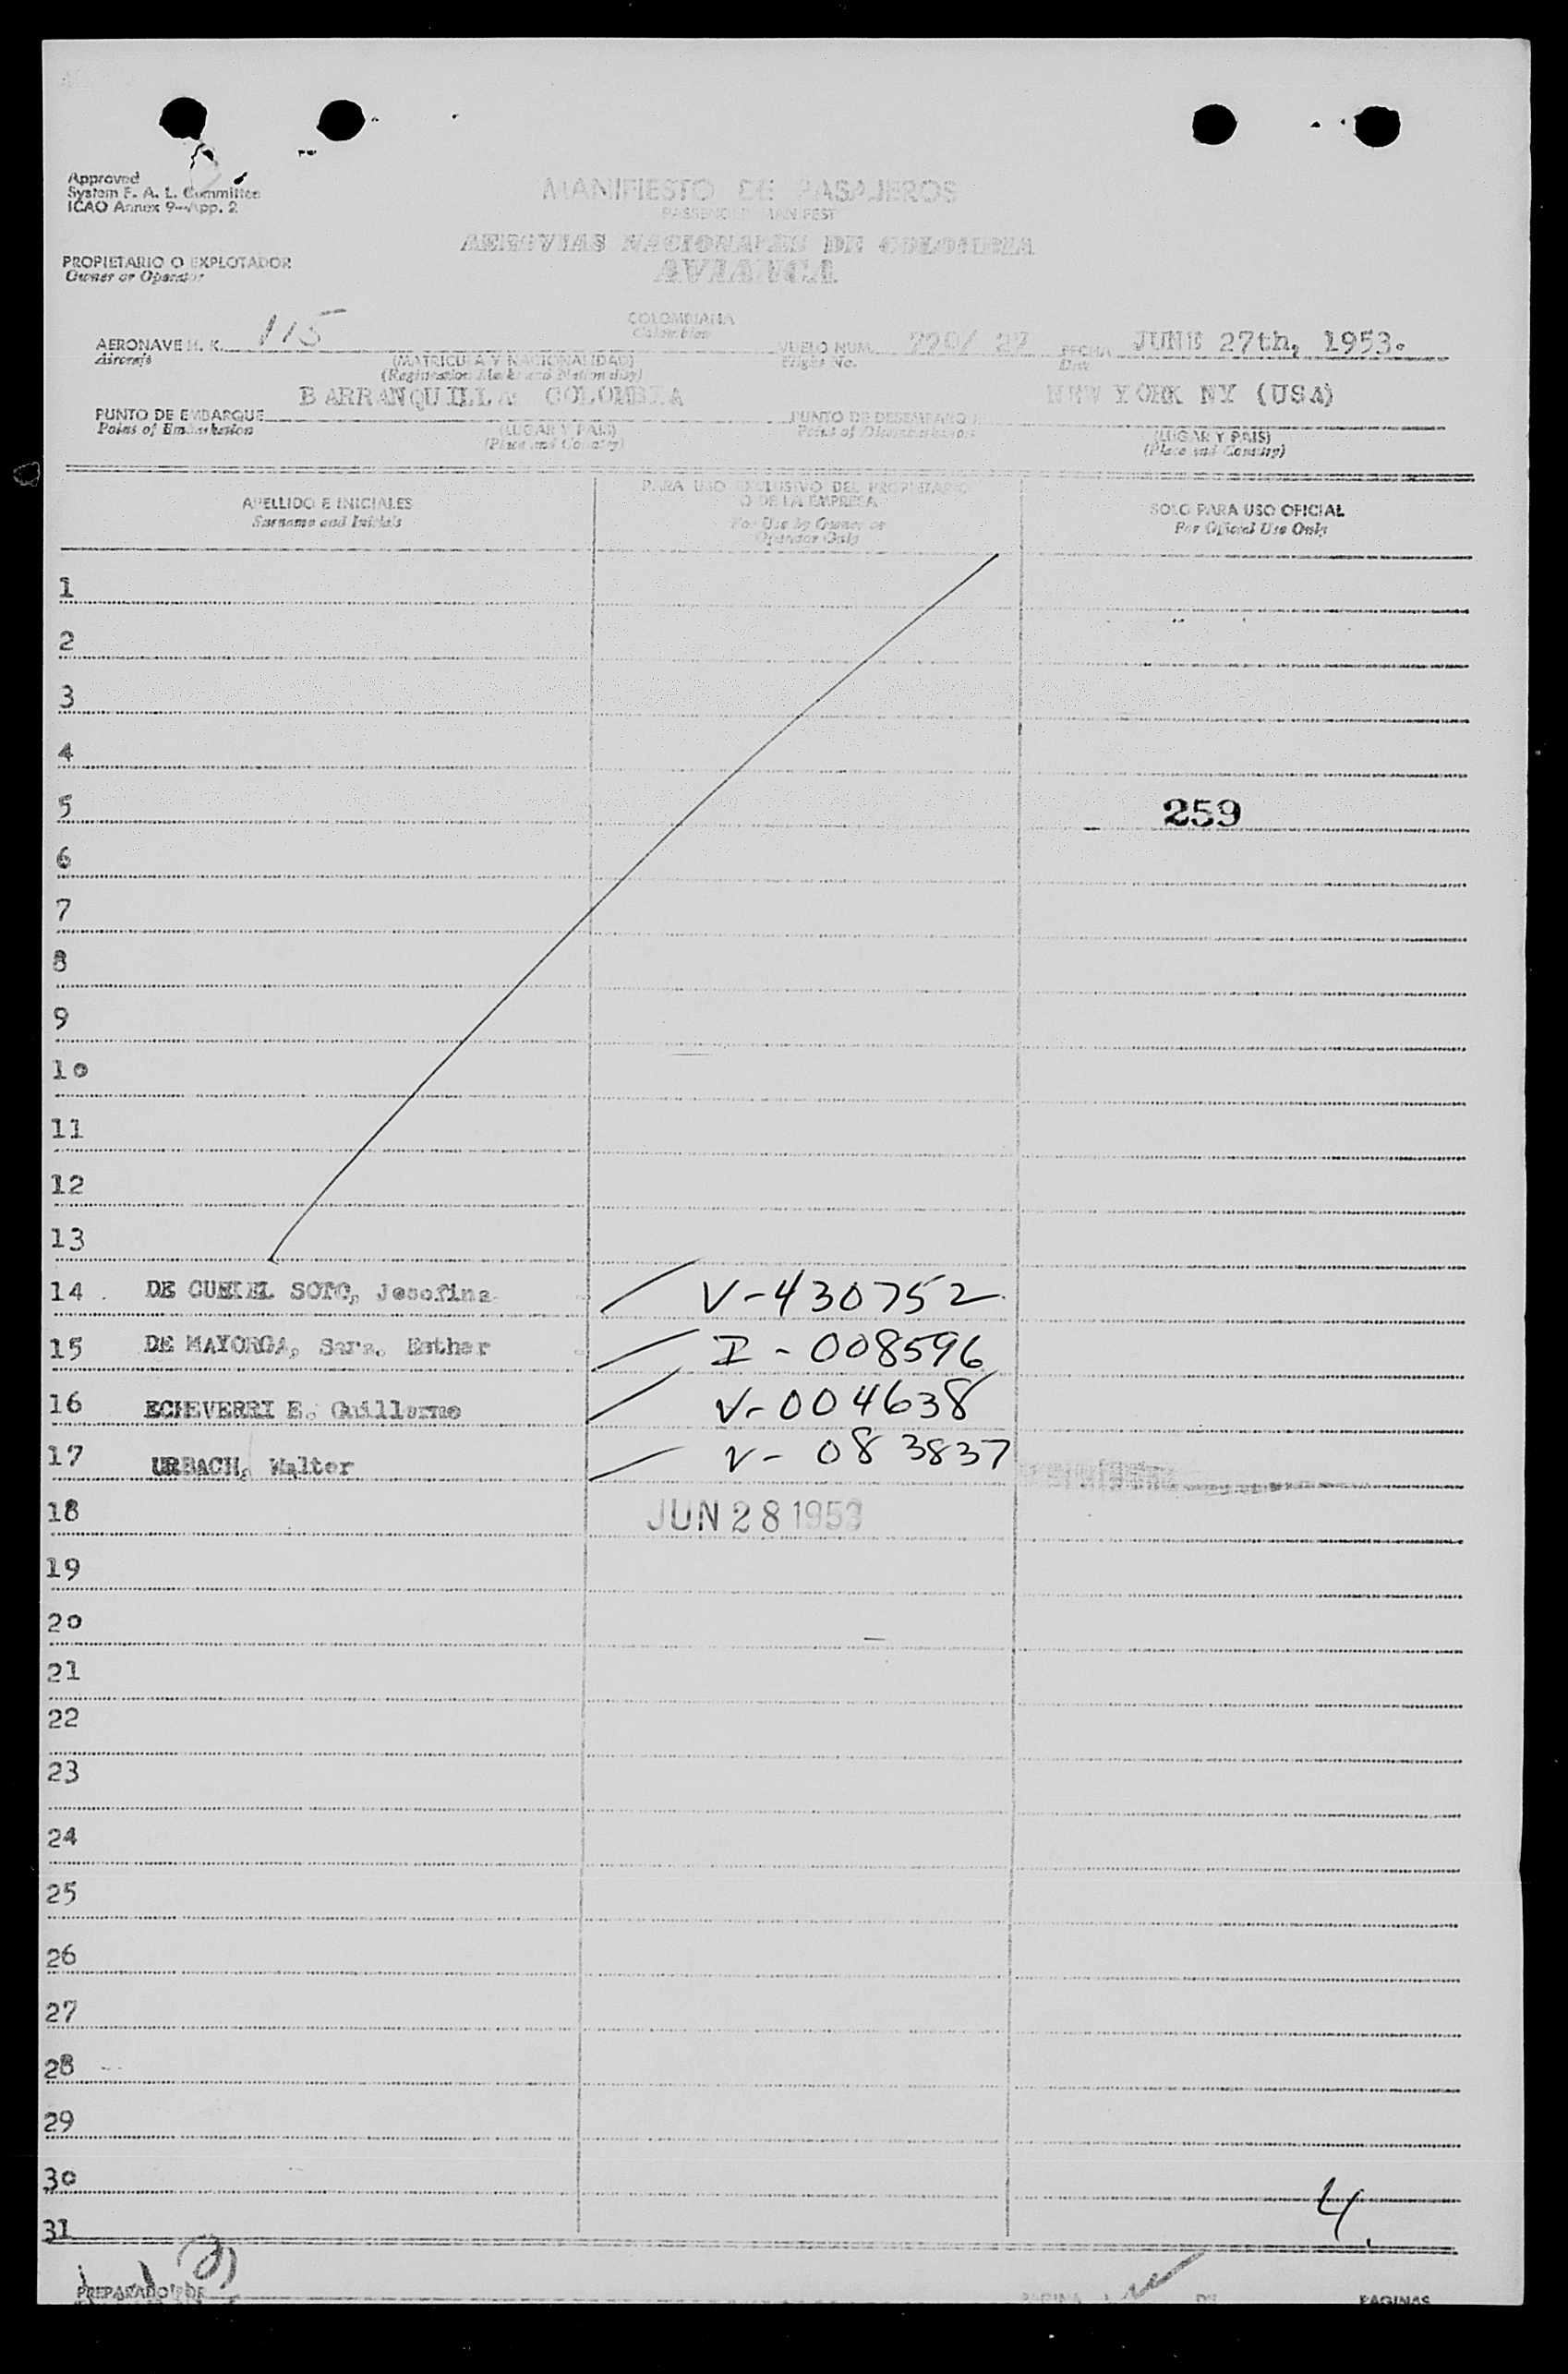 Approved
System F. A. L. Committee
ICAO Annex 9—App. 2
MANIFIESTO DE PASAJEROS
PASSENGER MANIFEST
AEROVIAS NACIONALES DE COLOMBIA
AVIANCA
PROPIETARIO O EXPLOTADOR
Owner or Operator
AERONAVE H. K. 115
Aircraft
(MATRICULA Y NACIONALIDAD)
(Registration Marks and Nationality)
COLOMBIANA
Colombian
VUELO NUM. 770/ 27
Flight No.
FECHA JUNE 27th, 1953.
Date
PUNTO DE EMBARQUE BARRANQUILLA COLOMBIA
Point of Embarkation
(LUGAR Y PAIS)
(Place and Country)
PUNTO DE DESEMBARQUE NEW YORK NY (USA)
Point of Disembarkation
(LUGAR Y PAIS)
(Place and Country)
APELLIDO E INICIALES
Surname and Initials
PARA USO EXCLUSIVO DEL PROPIETARIO
O DE LA EMPRESA
For Use by Owner or
Operator Only
SOLO PARA USO OFICIAL
For Official Use Only
1
2
3
4
5 259
6
7
8
9
10
11
12
13
14 DE SOTO, Josefina V-430752
15 DE MAYORGA, Sara. Esther I-008596
16 ECHEVERRI E. Guillermo V-004638
17 URBACH, Walter V-083837
18 JUN 28 1953
19
20
21
22
23
24
25
26
27
28
29
30
31
4
PREPARADO POR
PAGINA DE PAGINAS